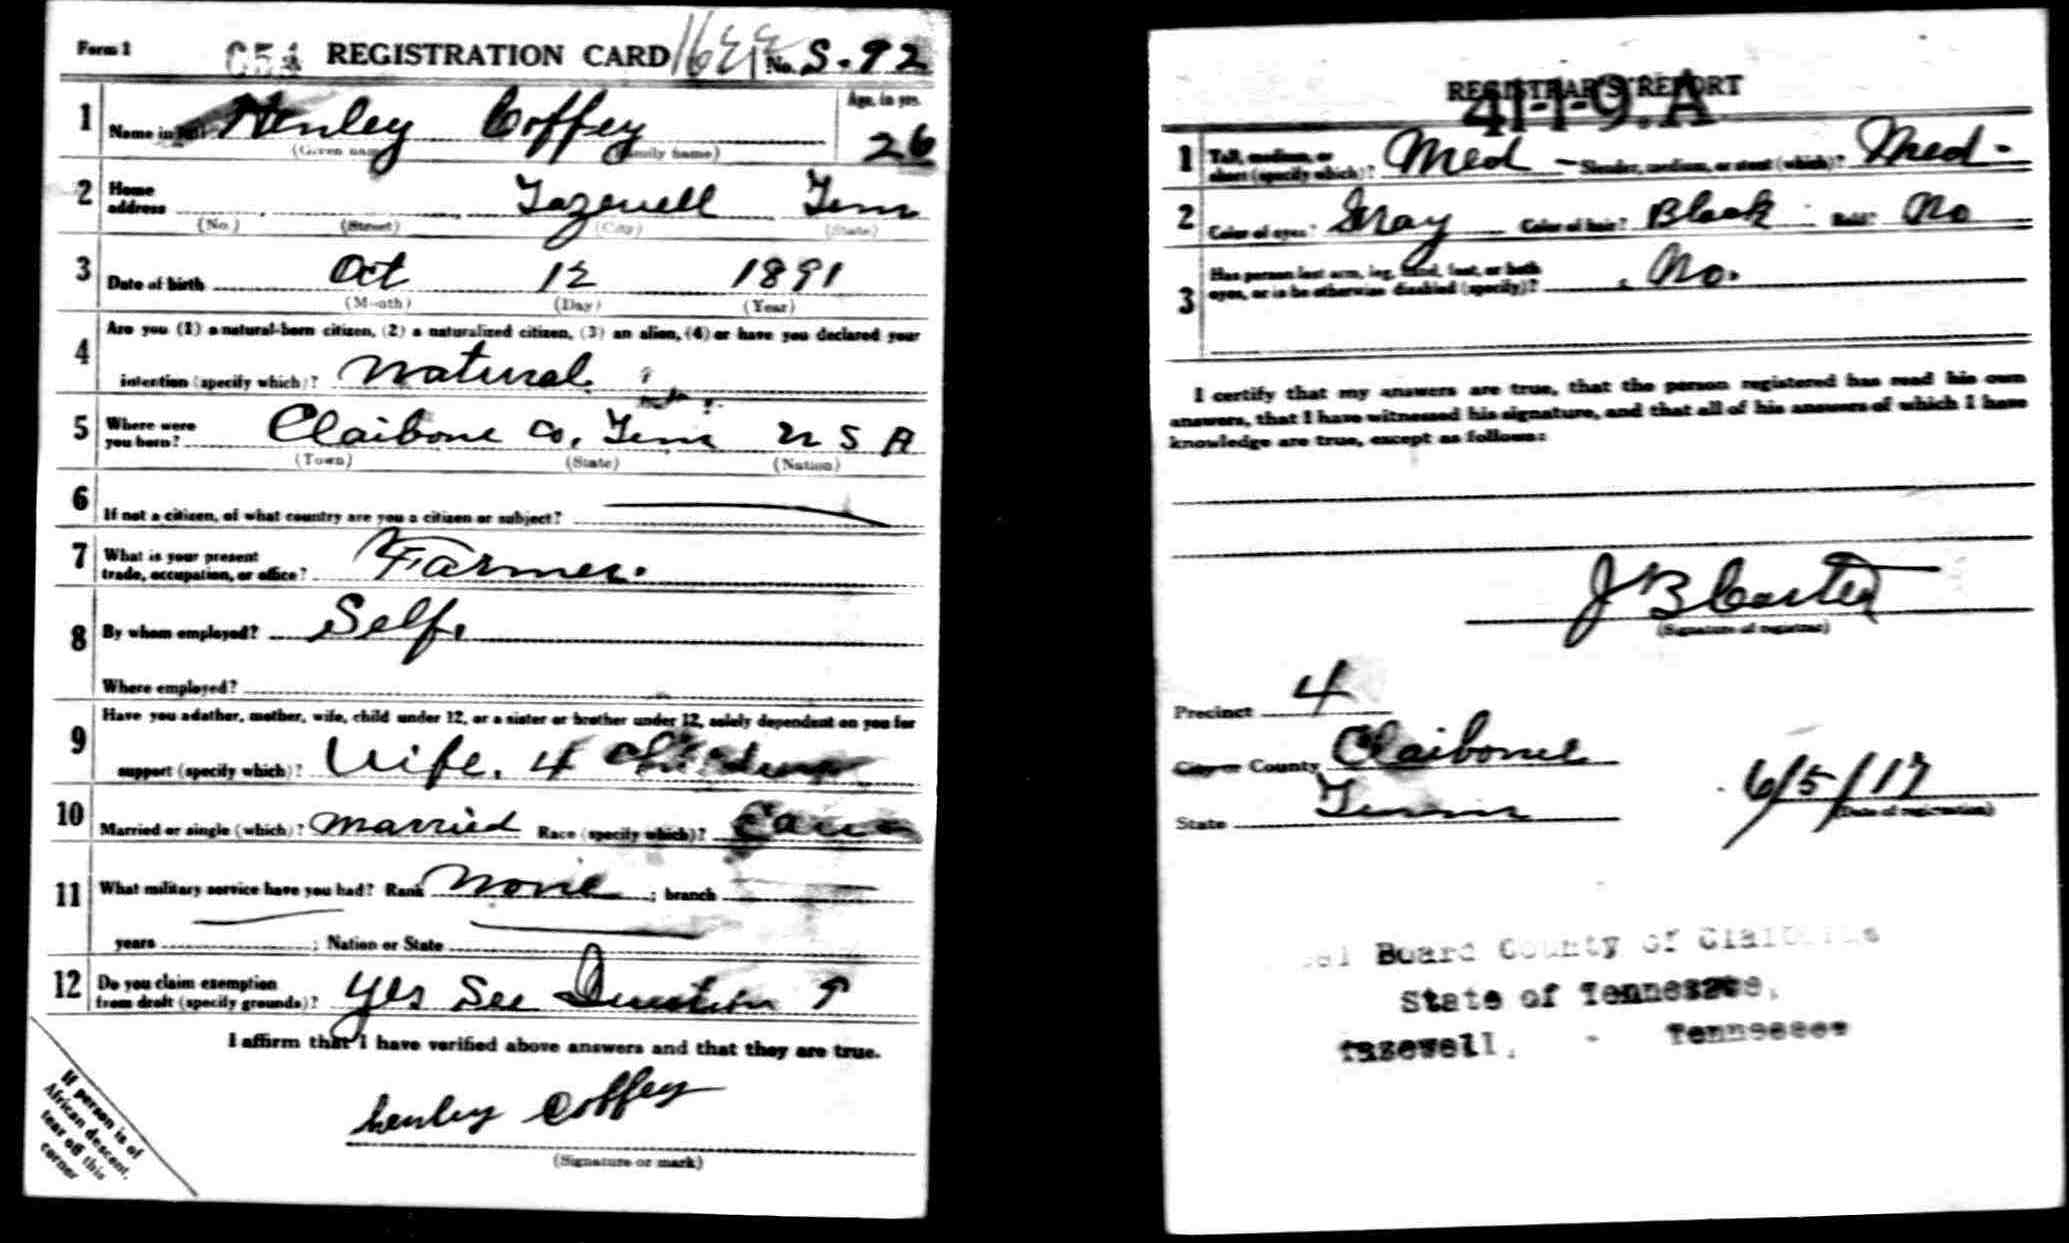 Form 1 REGISTRATION CARD No. S-92
1 Name in full Henley Coffey Age, in yrs. 26
(Given name) (Family name)
2 Home address Tazewell Tenn
(No.) (Street) (City) (State)
3 Date of birth Oct 12 1891
(Month) (Day) (Year)
4 Are you (1) a natural-born citizen, (2) a naturalized citizen, (3) an alien, (4) or have you declared your
intention (specify which)? Natural
5 Where were you born? Claibone Co, Tenn U S A
(Town) (State) (Nation)
6 If not a citizen, of what country are you a citizen or subject?
7 What is your present trade, occupation, or office? Farmer.
8 By whom employed? Self.
Where employed?
9 Have you a father, mother, wife, child under 12, or a sister or brother under 12, solely dependent on you for
support (specify which)? Wife, 4 Children
10 Married or single (which)? Married Race (specify which)?
11 What military service have you had? Rank None ; branch
years ; Nation or State
12 Do you claim exemption from draft (specify grounds)? Yes See Question 9
I affirm that I have verified above answers and that they are true.
Henley Coffey
(Signature or mark)
If person is of
African descent,
tear off this
corner
REGISTRAR'S REPORT
41-1-9.A
1 Tall, medium, or short (specify which)? Med - Slender, medium, or stout (which)? Med -
2 Color of eyes? Gray Color of hair? Black Bald? No
3 Has person lost arm, leg, hand, foot, or both eyes, or is he otherwise disabled (specify)? No.
I certify that my answers are true, that the person registered has read his own
answers, that I have witnessed his signature, and that all of his answers of which I have
knowledge are true, except as follows:
J B Carter
(Signature of registrar)
Precinct 4
City or County Claiborne
State Tenn
6/5/17
(Date of registration)
Board County of Claiborne
State of Tennessee,
Tazewell, - Tennessee